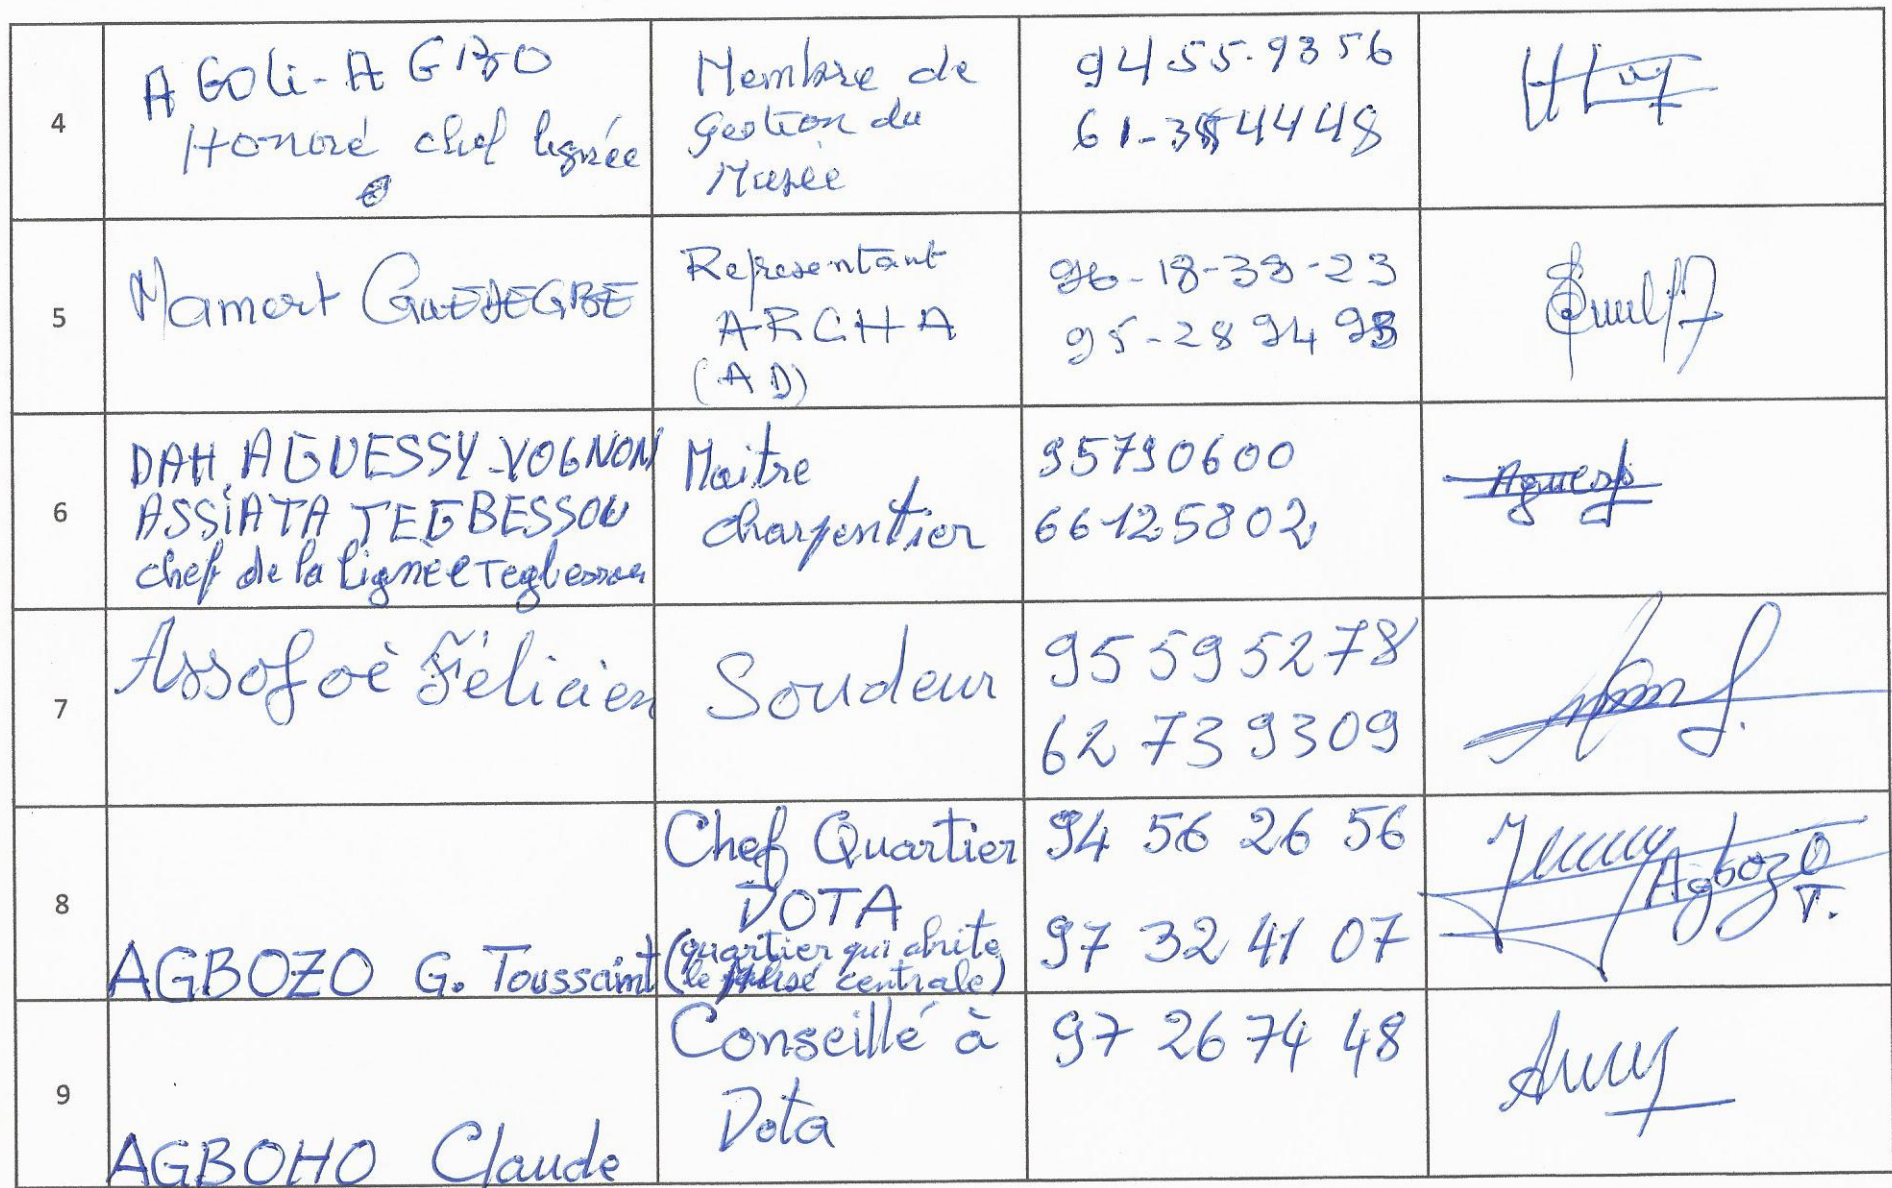 4
AGOLi-AGBO
Honoré chef lignée
Membre de
Gestion du
Musée
94.55.93 56
61-3544448
5
Mamert GUEDEGBE
Representant
ARCHA
(AD)
96-18-33-23
95-28 94 93
6
DAH AGUESSY-VOGNON
ASSiATA TEGBESSOU
chef de la lignèe Tegbessou
Maitre
charpentier
95790600
66125802
Aguessy
7
Assofoè Félicien
Soudeur
95595278
62 739309
8
AGBOZO G. Toussaint
Chef Quartier
DOTA
(quartier qui abrite
le centrale)
94 56 26 56
97 32 41 07
Agbozo
T.
9
AGBOHO Claude
Conseillé à
Dota
97 26 74 48